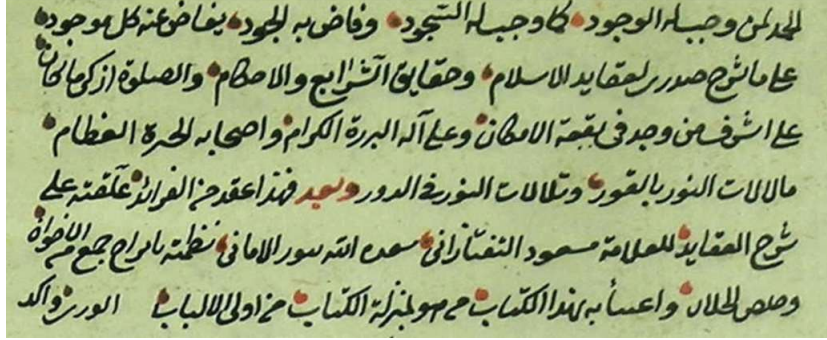 الحمد لمن وجب له الوجود كما وجب له السجود وفاض به الجود يفاض عنه كل موجود
على ما شرح صدرى لعقايد الاسلام وحقايق الشرايع والاحكام والصلوة ازكى ما كان
على اشرف من وجد فى بقعة الامكان وعلى آله البررة الكرام واصحابه الخيرة العظام
مالالات النور بالقور وتلالات النور فى الدور وبعد فهذا عقد من الفرائد علقته على
شرح العقايد للعلامة مسعود التفتازانى سعده الله بنور الامانى نظمته بامراح جمع من الاخوان
وخلص الخلان واعتنا به بهذا الكتاب من هو بمنزلة الكتاب من اولى الالباب